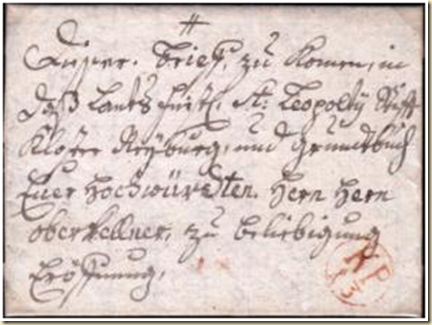 Dieser. brieff, zu Komen, in
daß Lants fürstl. St: Leopolty Stüfft
Kloster Neyburg, und Grundtbuch
Euer Hochwürdten. Hern Hern
oberkellner, zu beliebigung
Eröffnung,